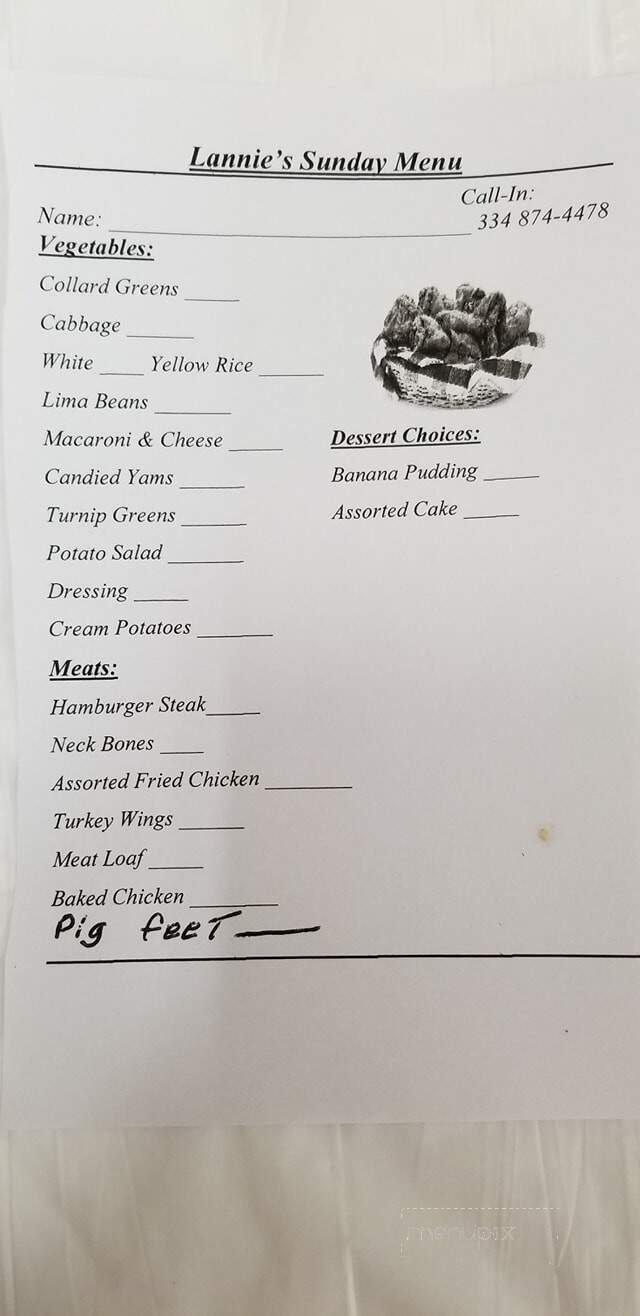 Lannie's Sunday Menu
Call-In:
Name: ______ 334 874-4478
Vegetables:
Collard Greens _____
Cabbage ______
White ____ Yellow Rice ______
Lima Beans _______
Macaroni & Cheese _____
Candied Yams ______
Turnip Greens ______
Potato Salad _______
Dressing _____
Cream Potatoes _______
Dessert Choices:
Banana Pudding _____
Assorted Cake _____
Meats:
Hamburger Steak_____
Neck Bones ____
Assorted Fried Chicken ________
Turkey Wings ______
Meat Loaf _____
Baked Chicken ________
Pig feet —
menupix